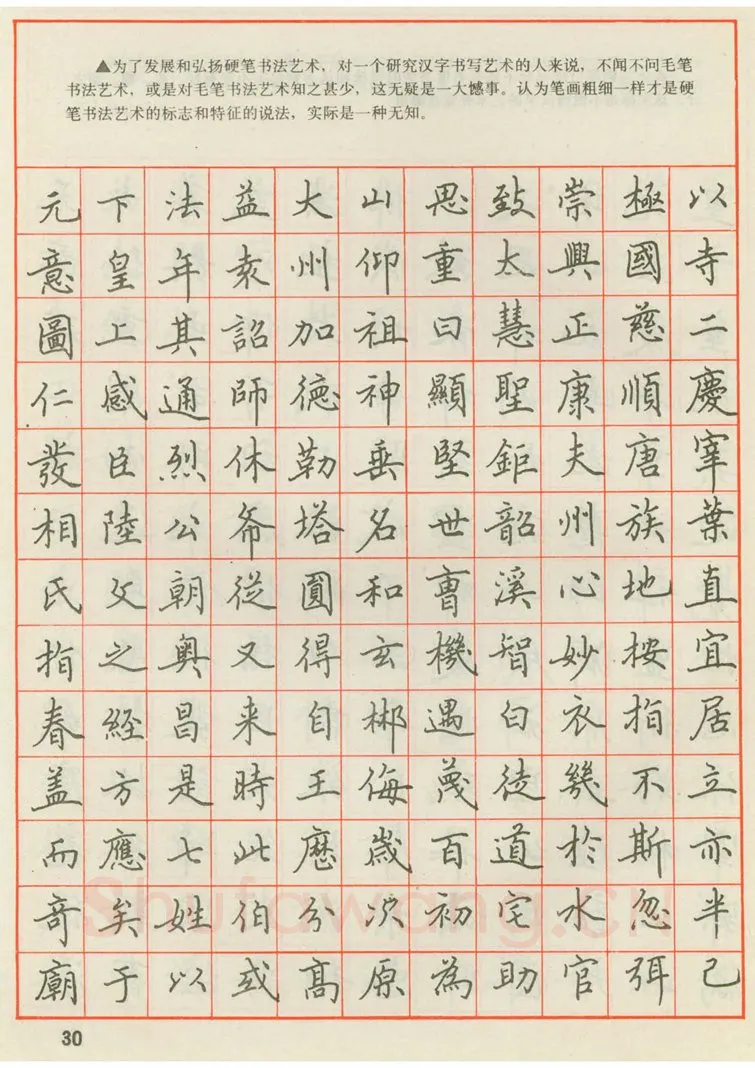 ▲为了发展和弘扬硬笔书法艺术，对一个研究汉字书写艺术的人来说，不闻不问毛笔
书法艺术，或是对毛笔书法艺术知之甚少，这无疑是一大憾事。认为笔画粗细一样才是硬
笔书法艺术的标志和特征的说法，实际是一种无知。
元下法益大山思致崇極以
意皇年袁州仰重太興國寺
圖上其詔加祖曰慧正慈二
仁感通師德神顯聖康順慶
發臣烈休勒垂堅鉅夫唐宰
相陸公塔名世韶州族葉
氏父朝從圓和曹溪心地直
指之奥又得玄機智妙按宜
春經昌来自郴遇白衣指居
盖方是時王侮蔑徒幾不立
而應七此歷歲百道於斯亦
奇矣姓伯分次初宅水忽半
廟于以或高原為助官弭已
Shufawang.cn
30